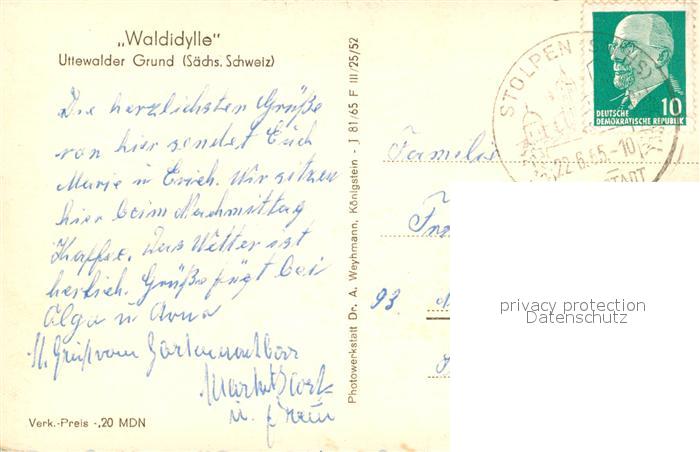 „Waldidylle"
Uttewalder Grund (Sächs. Schweiz)
Die herzlichsten Grüße
von hier sendet Euch
Marie u Erich. Wir sitzen
hier beim Nachmittag
Kaffee. Das Wetter ist
herlich. Grüße fügt bei
Olga u Anna
Gruß vom
u. Frau
Verk.-Preis -,20 MDN
Photowerkstatt Dr. A. Weyhmann, Königstein - J 81/65 F III/25/52
STOLPEN (SACHS)
22.6.65.-10
10
DEUTSCHE
DEMOKRATISCHE REPUBLIK
Familie
93
privacy protection
Datenschutz